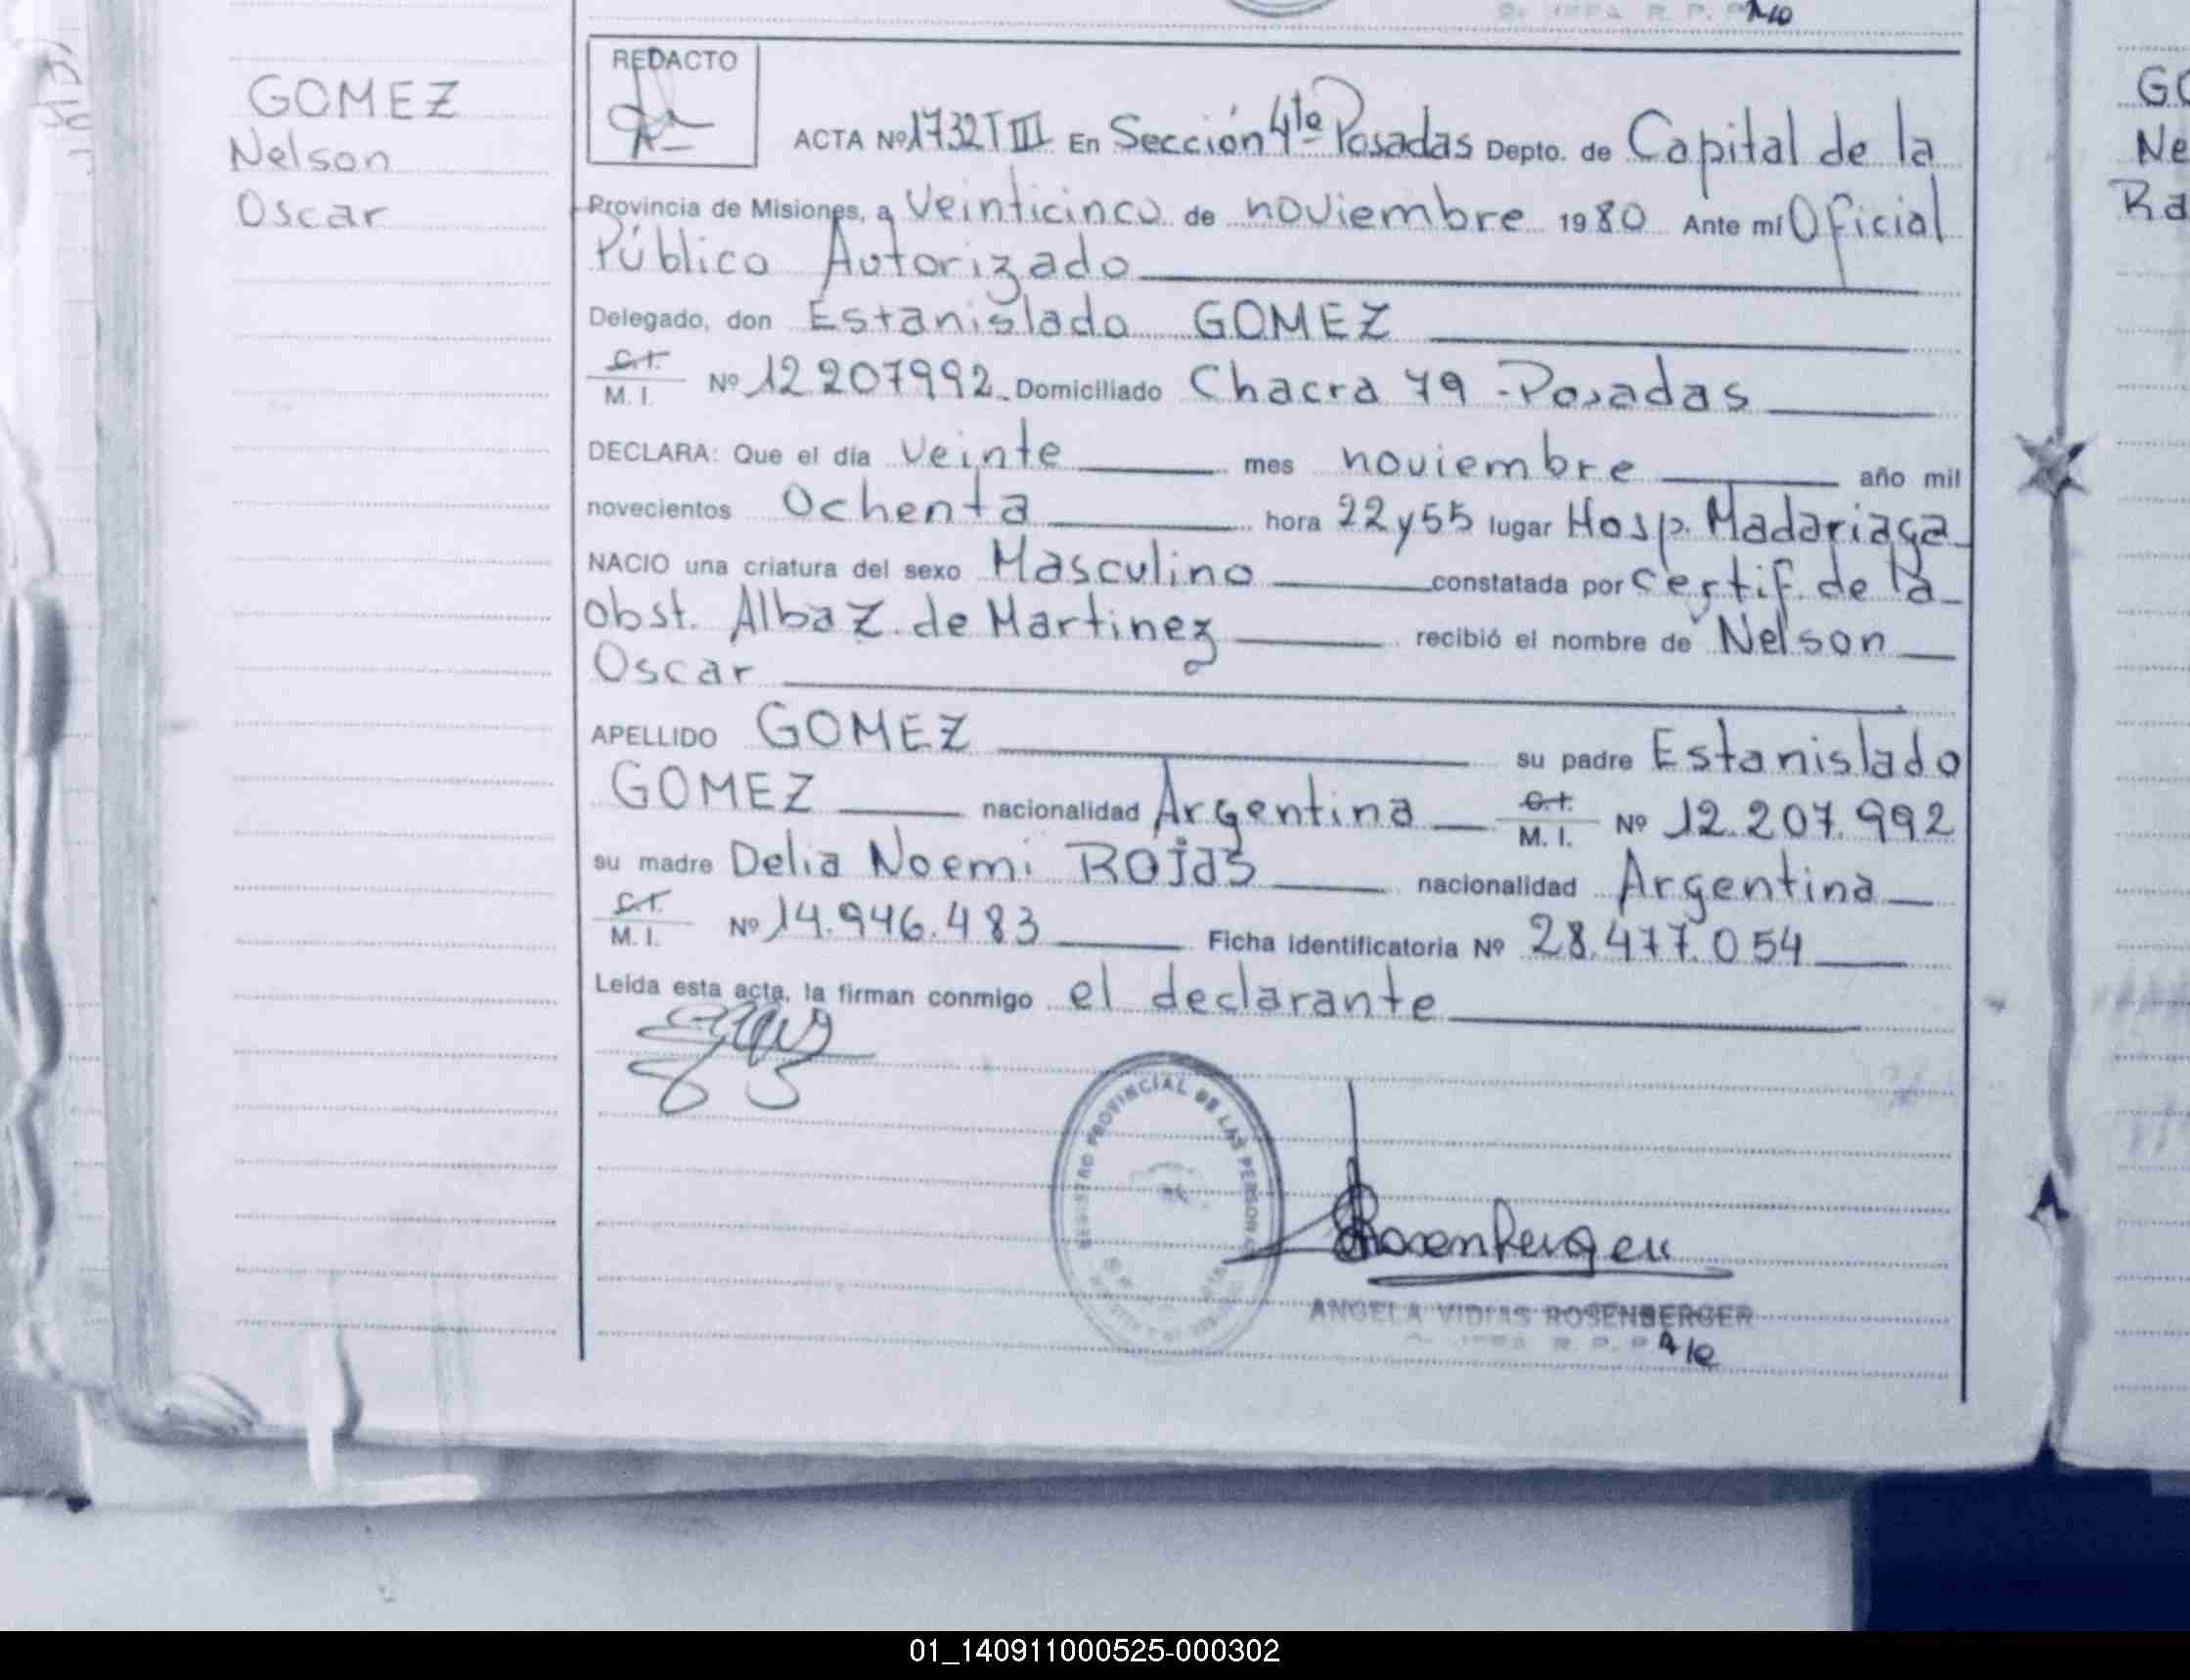 GOMEZ
Nelson
Oscar
REDACTO
ACTA Nº 1732 T III En Sección 4ta Posadas Depto. de Capital de la
Provincia de Misiones, a veinticinco de noviembre 1980 Ante mí Oficial
Público Autorizado
Delegado, don Estanislado GOMEZ
C.I.
M. I. Nº 12207992 Domiciliado Chacra 79 - Posadas
DECLARA: Que el día veinte mes noviembre año mil
novecientos Ochenta hora 22 y 55 lugar Hosp. Madariaga
NACIO una criatura del sexo Masculino constatada por certif. de la
obst. Alba Z. de Martinez recibió el nombre de Nelson
Oscar
APELLIDO GOMEZ su padre Estanislado
GOMEZ nacionalidad Argentina C.I.
M. I. Nº 12.207.992
su madre Delia Noemi ROJAS nacionalidad Argentina
C.I.
M. I. Nº 14.946.483 Ficha Identificatoria Nº 28.477.054
Leída esta acta, la firman conmigo el declarante
REGISTRO PROVINCIAL DE LAS PERSONAS
Rosenberger
ANGELA VIDIAS ROSENBERGER
R. P. P.
GO
Ne
Ra
01_140911000525-000302